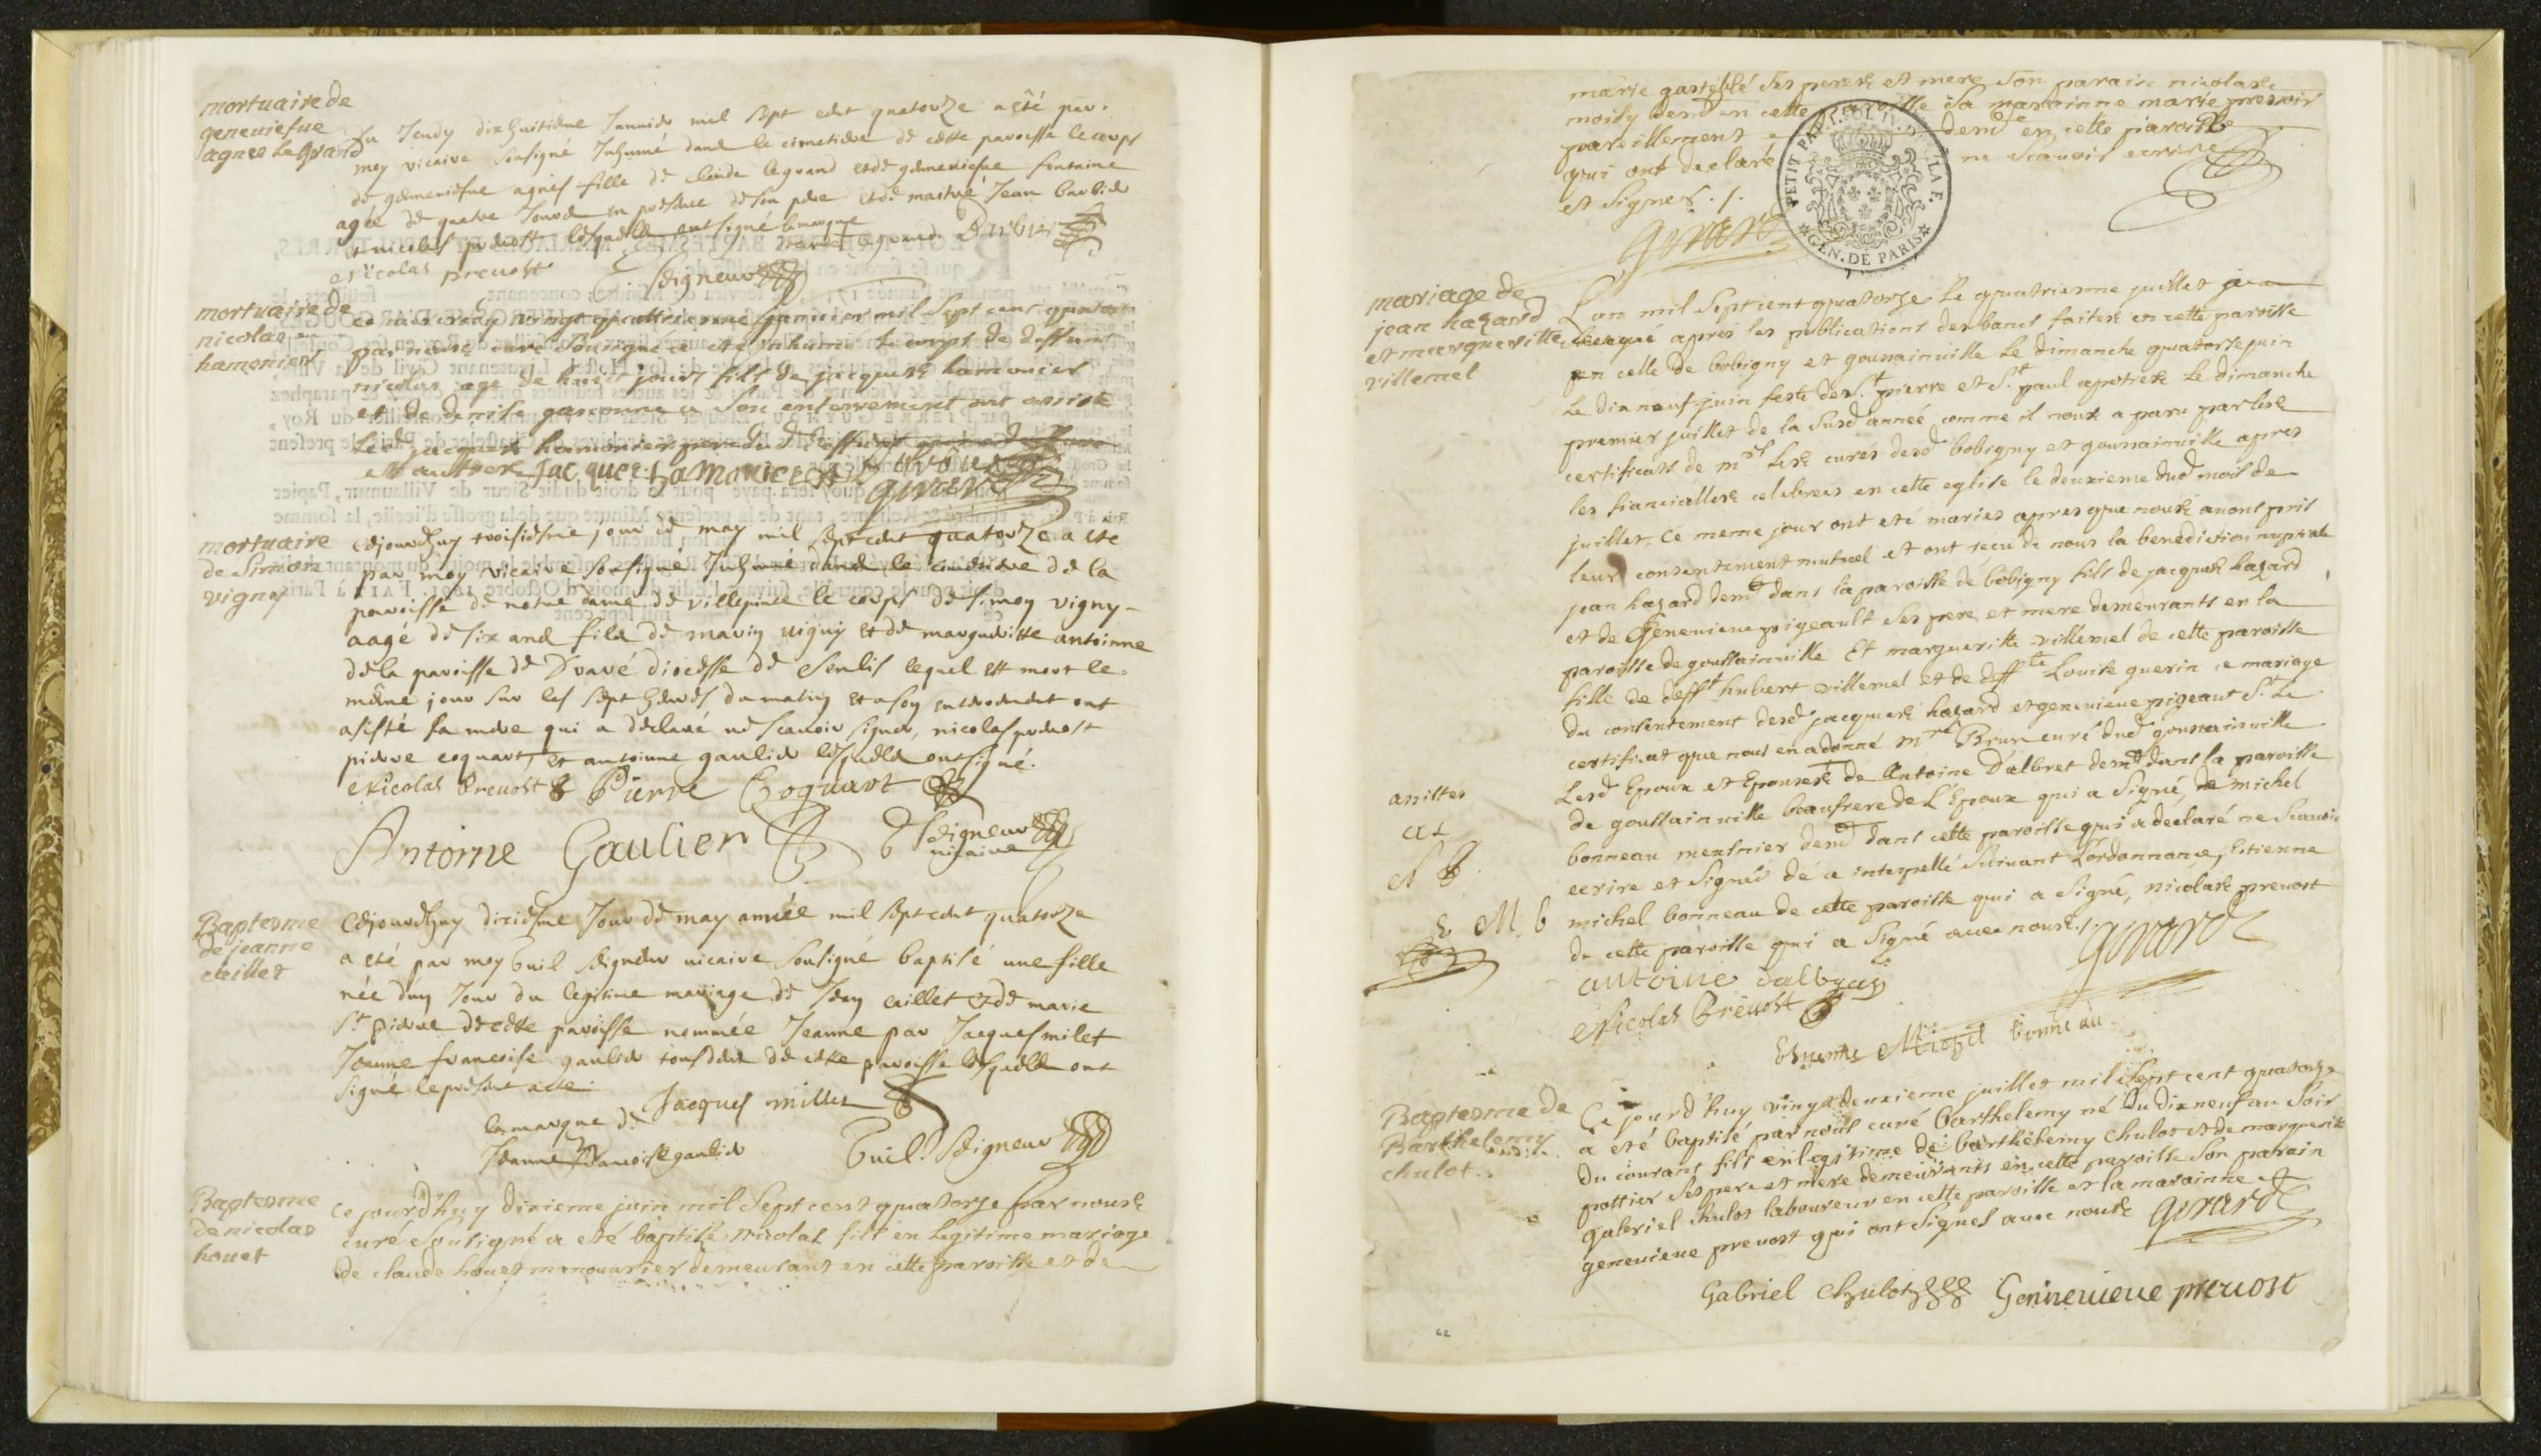 mortuaire de
geneuiefue
agnes le Grand
Jeudy dixhuitiême Januier mil sept cent quatorze a été par
moy vicaire sousigné Inhumé dans le cimetiere de cette paroisse le corps
de geneuiefue agnes fille de claude legrand et de geneuiefue fontaine
agée de quatre Jours en presence de son pere et de maitre Jean barbier
et nicolas preuost lesquells ont signé la marque
claude legrand Barbier
Nicolas preuost
G. Seigneur
mortuaire de
nicolas
hamonier
ce mercredy vingt quattriesme januier mil Sept cent quatorze
par nous curé Sousigné a eté inhumé le corps de deffunt
nicolas agé de huit jours fils de jacques hamonier
et de denise garconne a son enterrement ont assisté
Led jacques hamonier pere du d deffunt
et autres Jacques hamonier Barbier
Girard
mortuaire
de Simon
vigny
Cejourdhuy troisiesme jour de may mil sept cent quatorze a ete
par moy vicaire sousigné Inhumé dans le cimetiere de la
paroisse de notre dame de villepinte le corps de simon vigny
aagé de six ans fils de marin vigny et de margueritte antoinne
de la paroisse de Duavé diocesse de Senlis lequel est mort le
même jour sur les sept heures du matin et a son enterrement ont
asisté sa mere qui a declaré ne scauoir signer, nicolas preuost
pierre coquart, et antoinne gaulier lesquells ont signé.
Nicolas Preuost Pierre Coquart
Antoine Gaulier G Seigneur
vicaire
Baptesme
de jeanne
caillet
Cejourdhuy dixiesme Jour de may année mil sept cent quatorze
a eté par moy Guil Seigneur vicaire sousigné baptisé une fille
née dun Jour du legitime mariage de Jean caillet et de marie
St pierre de cette paroisse nommée Jeanne par Jacques milet
Jeanne francoise gaulier tous deux de cette paroisse lesquells ont
signé le present acte.
la marque de Jacques millet
Jeanne francoise gaulier Guil. Seigneur
Baptesme
de nicolas
houet
Ce jourdhuy dixieme juin mil Sept cent quatorze par nous
curé Sousigné a eté baptisé nicolas fils en Legitime mariage
de claude houet manouurier demeurant en cette paroisse et de
marie ses pere et mere Son parain nicolas
moisy demt en cette paroisse Sa marainne marie pressoir
pareillement demte en cette paroisse
qui ont declaré ne Scauoir ecrire
et Signer. /.
PETIT PAP. LA F.
GEN. DE PARIS
Girard
mariage de
jean hazard
et margueritte
villemel
Lan mil Sept cent quatorze Le quatriesme juillet
apres les publications des bancs faites en cette paroisse
en celle de bobigny et goussainuille Le dimanche quatorze juin
Le dix neuf juin feste des St pierre et St paul apotres Le dimanche
premier juillet de la Susd année comme il nous a paru par les
certificats de mrs Les curés desd bobigny et goussainuille apres
les fiancailles celebrees en cette eglise le deuxieme dud mois de
juillet. Ce meme jour ont eté mariés apres que nous auons pris
leur consentement mutuel et ont receu de nous la benediction nuptiale
jean hazard demt dans la paroisse de bobigny fils de jacques hazard
et de Geneuieue pigeault ses pere et mere demeurants en la
paroisse de goussainuille Et margueritte villemel de cette paroisse
fille de defft hubert villemel et de deffte Louise guerin ce mariage
du consentement desd jacques hazard et geneuieue pigeaut St Le
certificat que nous en a donné mre Brun curé dud goussainuille
Lesd Epoux et Epouse de Antoine Dalbret demt dans la paroisse
de goussainuille beaufrere de L'Epoux qui a Signé, de michel
bonneau meusnier demt dans cette paroisse qui a declaré ne Scauoir
ecrire et Signer de ce interpellé Suiuant Lordonnance, Estienne
michel bonneau de cette paroisse qui a signé, nicolas preuost
de cette paroisse qui a Signé auec nous. /.
assistes
a t
E M b
Girard
antoine dalbret
Nicolas Preuost
Etienne Michel bonneau
Baptesme de
Barthelemy
chulot.
Ce jourd'huy vingt deuxieme juillet mil Sept cent quatorze
a eté baptisé par nous curé barthelemy né Du dixneuf au Soir
du courant fils en legitime de barthelemy chulot et de margueritte
pottier Ses pere et mere demeurants en cette paroisse Son parain
gabriel chulot laboureur en cette paroisse et la marainne
geneuieue preuost qui ont Signes auec nous Girard
Gabriel chulot Genneuieue preuost